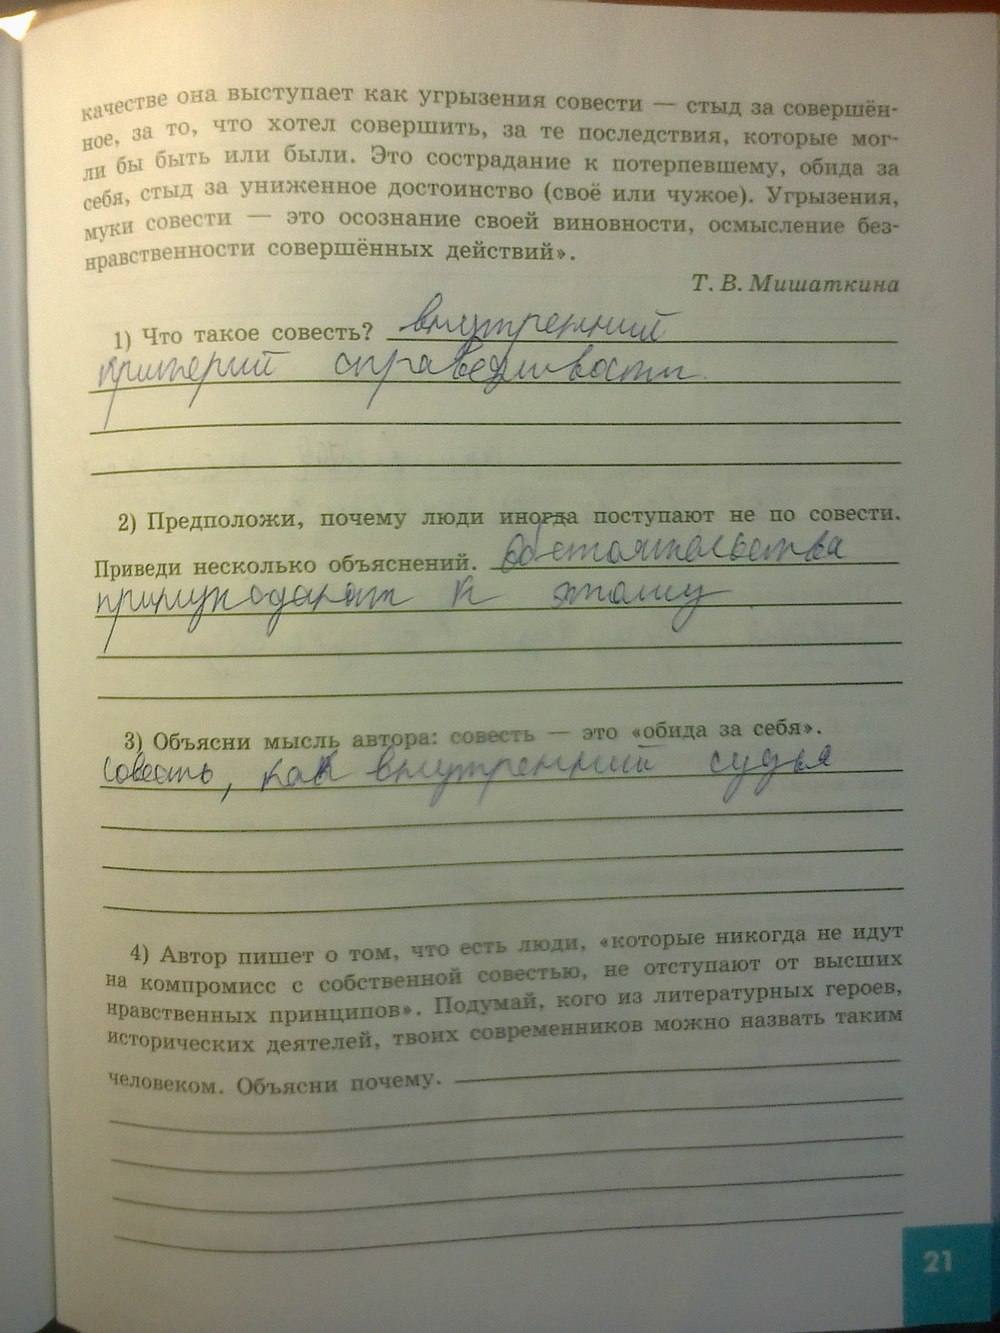 качестве она выступает как угрызения совести — стыд за совершён-
ное, за то, что хотел совершить, за те последствия, которые мог-
ли бы быть или были. Это сострадание к потерпевшему, обида за
себя, стыд за униженное достоинство (своё или чужое). Угрызения,
муки совести — это осознание своей виновности, осмысление без-
нравственности совершённых действий».
Т. В. Мишаткина
1) Что такое совесть? внутренний
критерий справедливости.
2) Предположи, почему люди иногда поступают не по совести.
Приведи несколько объяснений. Обстоятельства
принуждают к этому
3) Объясни мысль автора: совесть — это «обида за себя».
Совесть, как внутренний судья
4) Автор пишет о том, что есть люди, «которые никогда не идут
на компромисс с собственной совестью, не отступают от высших
нравственных принципов». Подумай, кого из литературных героев,
исторических деятелей, твоих современников можно назвать таким
человеком. Объясни почему.
21